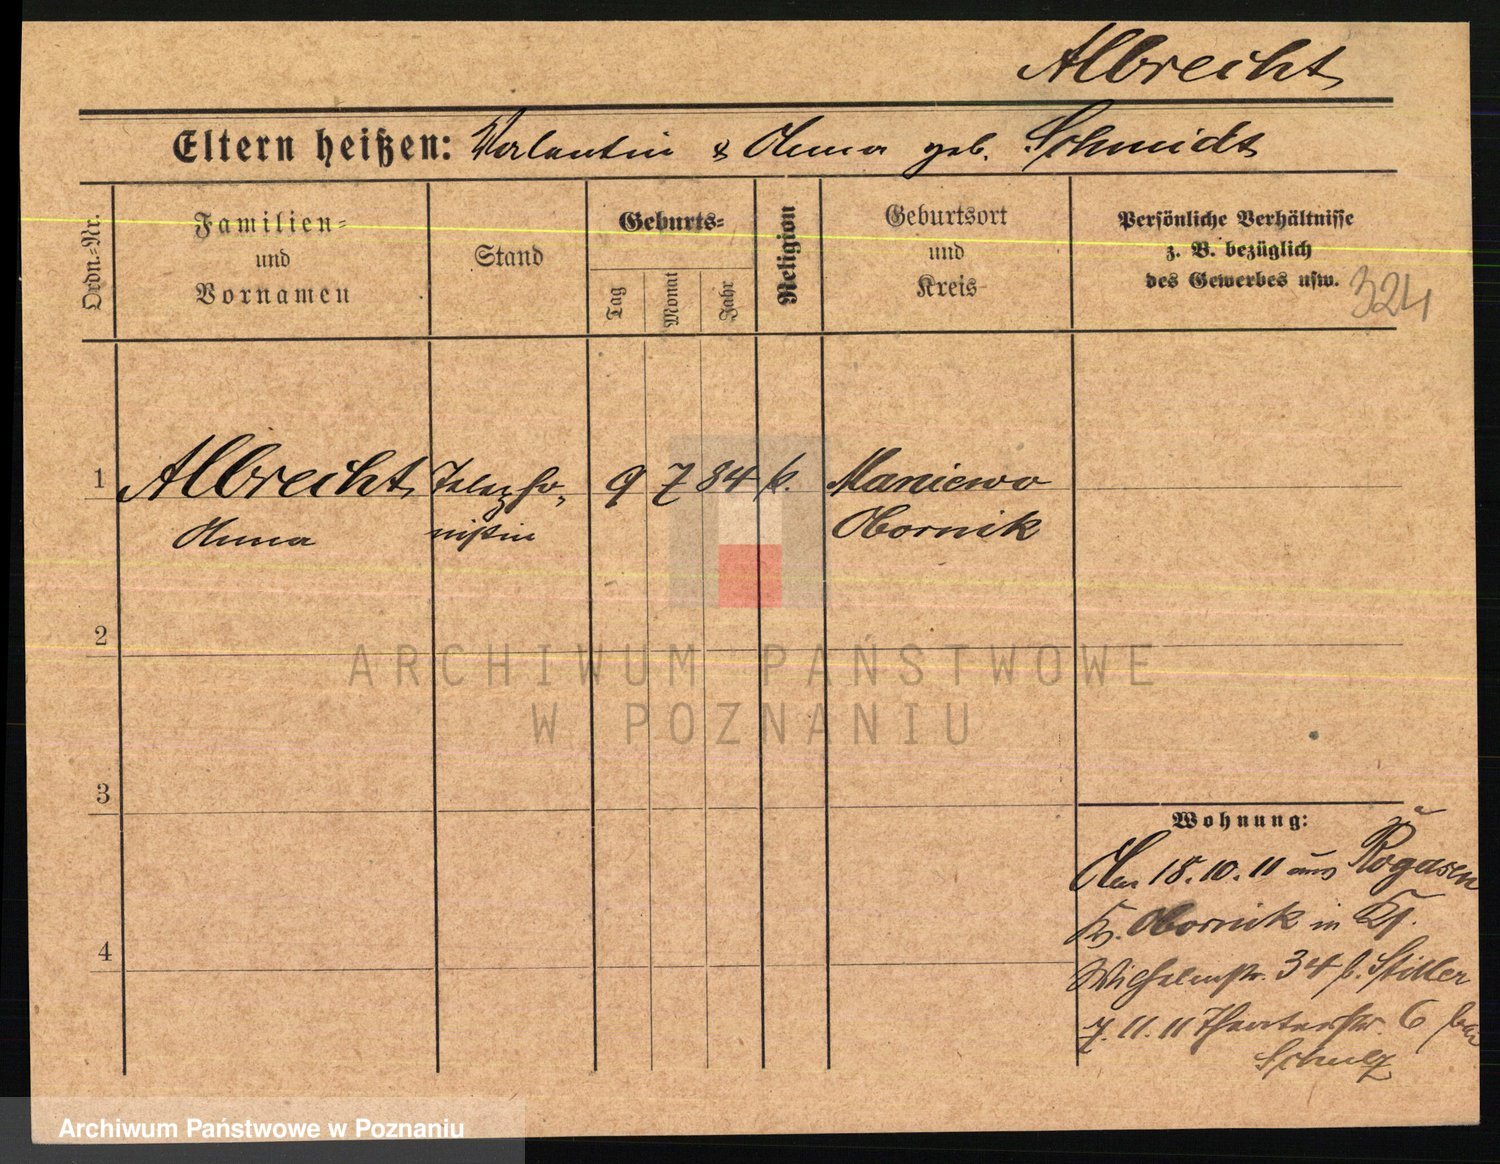 Albrecht
Eltern heißen: Valentin & Anna geb. Schmidt
Ordn.-Nr.
Familien-
und
Vornamen
Stand
Geburts-
Tag
Monat
Jahr
Religion
Geburtsort
und
Kreis
Persönliche Verhältnisse
z. B. bezüglich
des Gewerbes usw.
324
1 Albrecht Telepho- 9 7 84 k. Maniewo
Anna nistin Obornik
2
ARCHIWUM PAŃSTWOWE
W POZNANIU
3
Wohnung:
18.10.11 aus Rogasen
Kr. Obornik in
4
Wilhelmstr. 34 b. Stiller
7.11.11 Theaterstr. 6 bei
Schulz
Archiwum Państwowe w Poznaniu